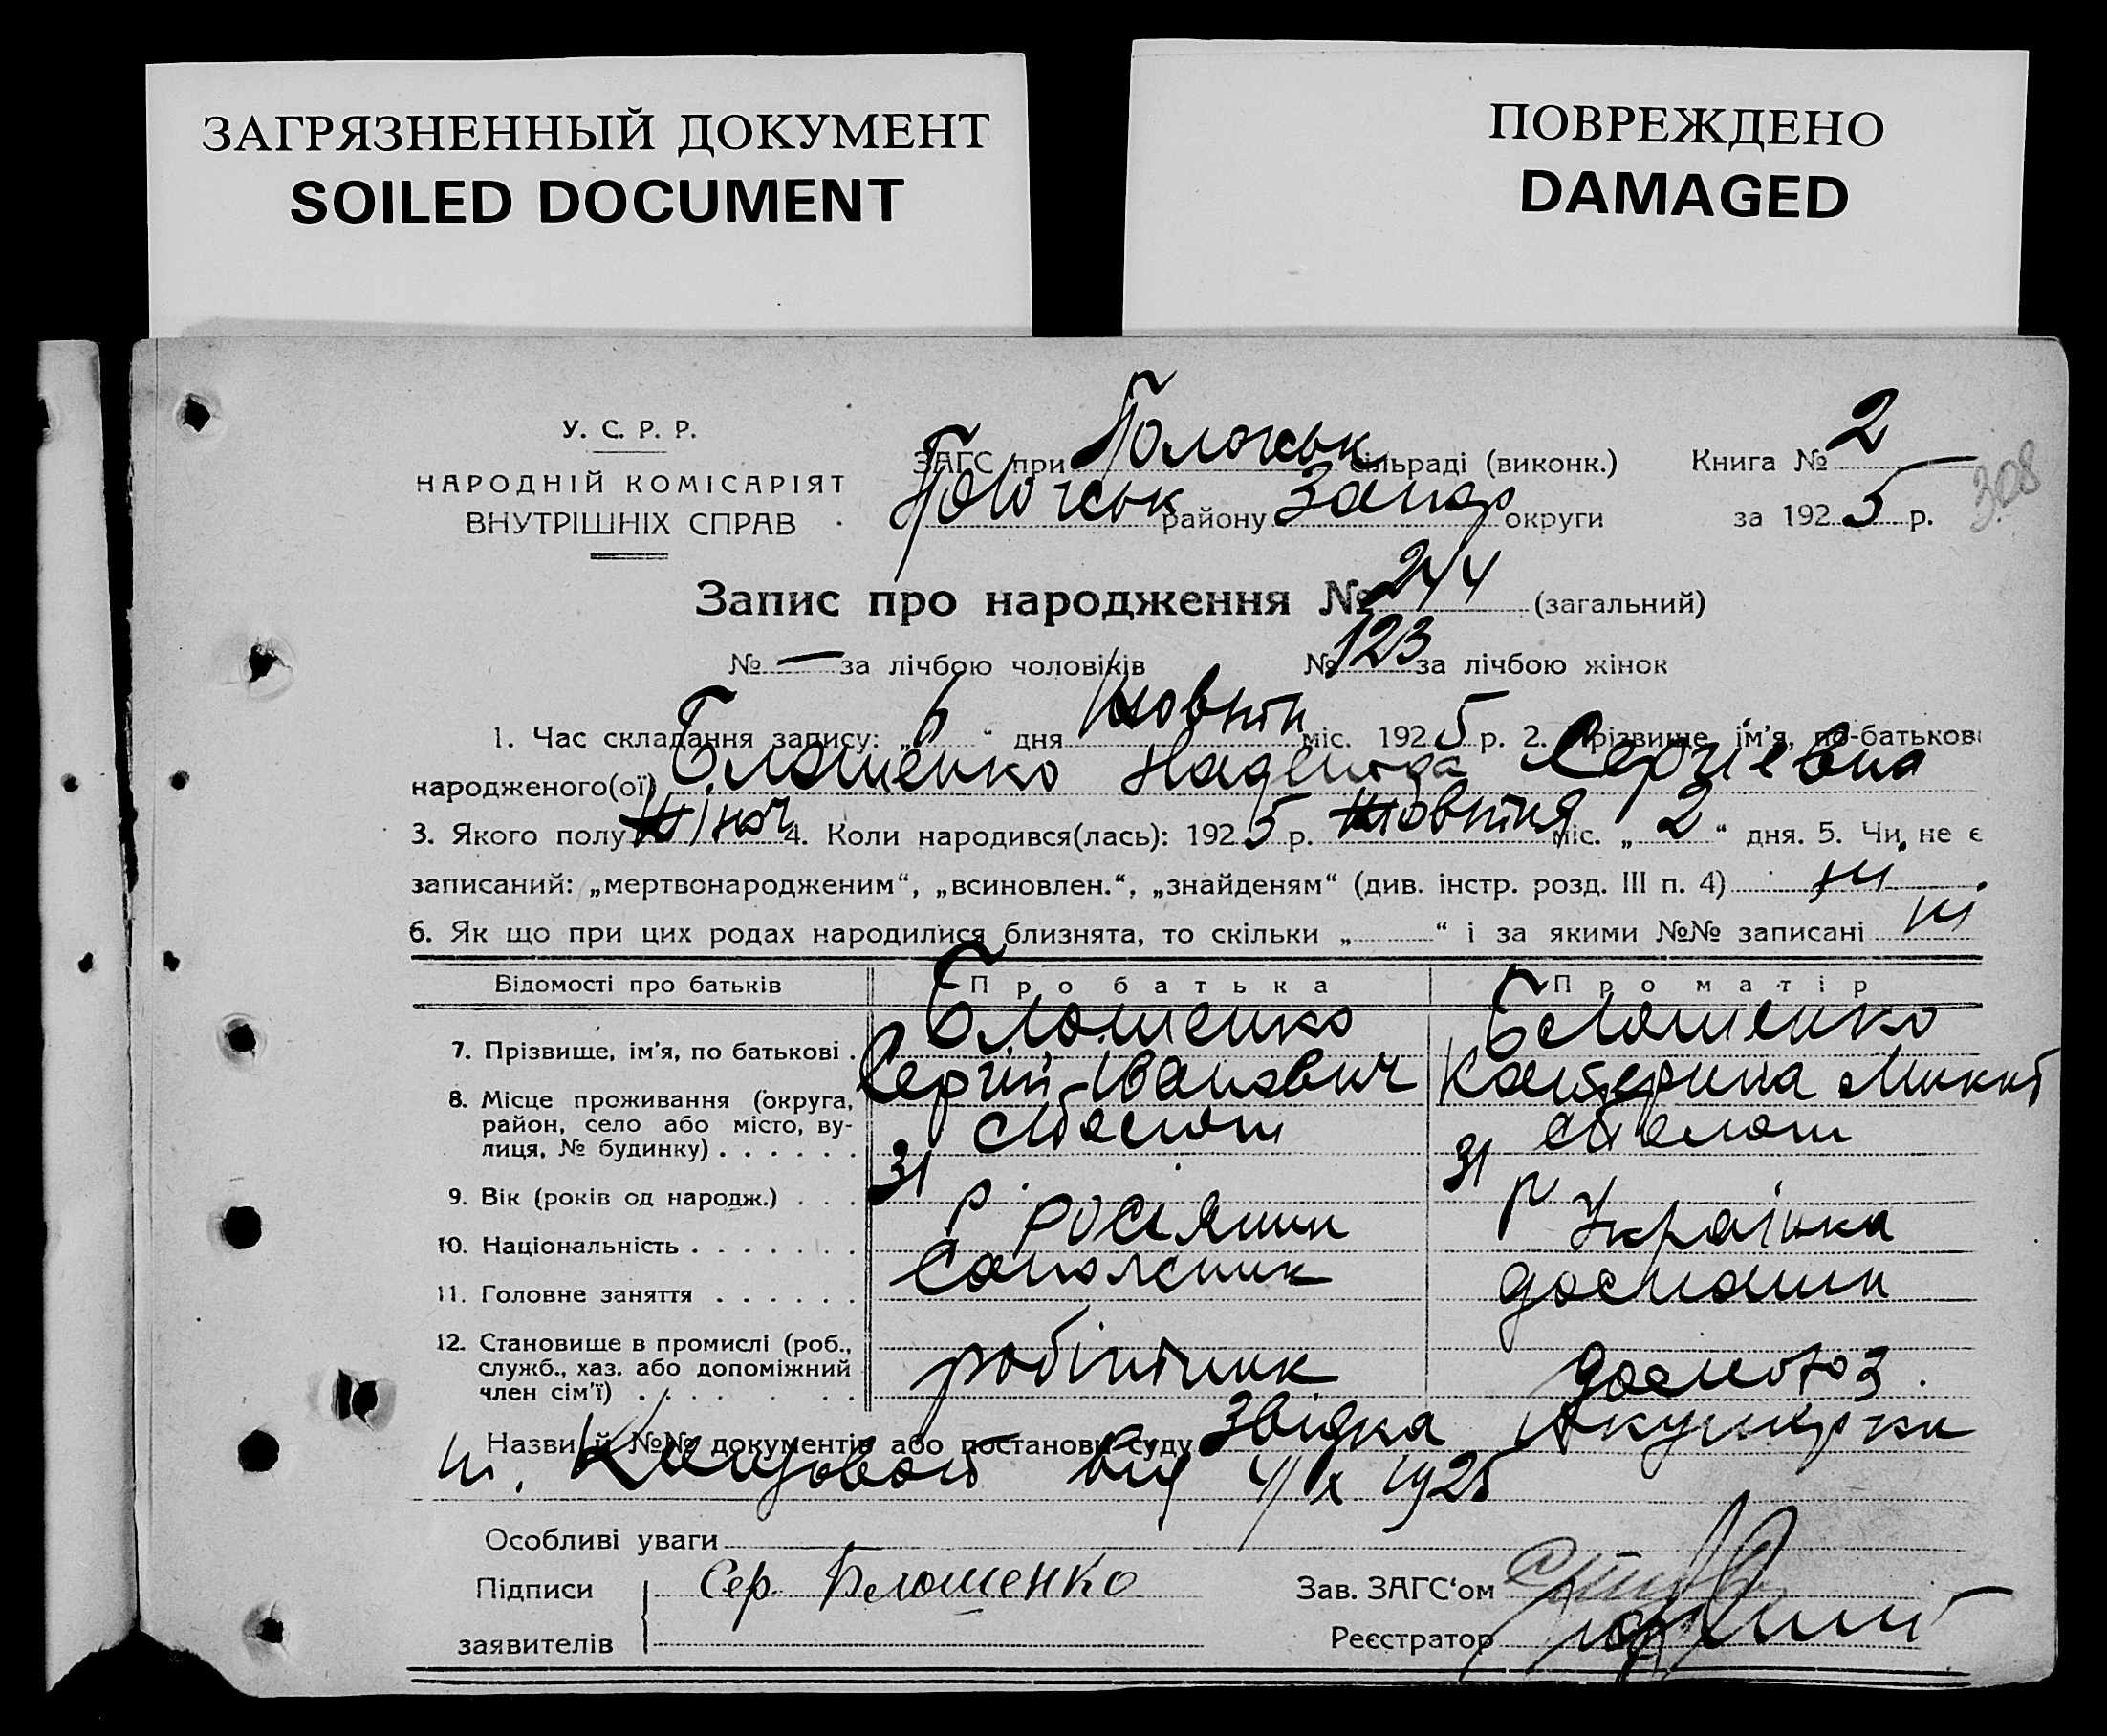 ЗАГРЯЗНЕННЫЙ ДОКУМЕНТ
SOILED DOCUMENT
ПОВРЕЖДЕНО
DAMAGED
У. С. Р. Р.
НАРОДНІЙ КОМІСАРІЯТ
ВНУТРІШНІХ СПРАВ
ЗАГС при сільраді (виконк.) Книга № 2
району Запор округи за 1925 р.
308
Запис про народження № 244 (загальний)
№ — за лічбою чоловіків № 123 за лічбою жінок
1. Час складання запису: „6“ дня Жовтн міс. 1925 р. 2. Прізвище, ім'я, по-батькові
народженого(ої) Білошенко Надежда Сергіевна
3. Якого полу жіноч 4. Коли народився(лась): 1925 р. жовтня міс. „2“ дня. 5. Чи не є
записаний: „мертвонародженим“, „всиновлен.“, „знайденям“ (див. інстр. розд. III п. 4) ні
6. Як що при цих родах народилися близнята, то скільки „ “ і за якими №№ записані ні
Відомості про батьків Про батька Про матір
7. Прізвище, ім'я, по батькові . Білошенко Сергій Іванович Белошенко Катерина Микит
8. Місце проживання (округа,
район, село або місто, ву-
лиця, № будинку) . . . . . .
9. Вік (років од народж.) . . . 31 р 31 р
10. Національність . . . . . . . росіянин Українка
11. Головне заняття . . . . . . Сапожник домашн
12. Становище в промислі (роб.,
служб., хаз. або допоміжний
член сім'ї) . . . . . робітник
Назви й №№ документів або постанови суду Звідка Акушерки
від 4/X 1925
Особливі уваги
Підписи Сер Белошенко Зав. ЗАГС'ом
заявителів Реєстратор